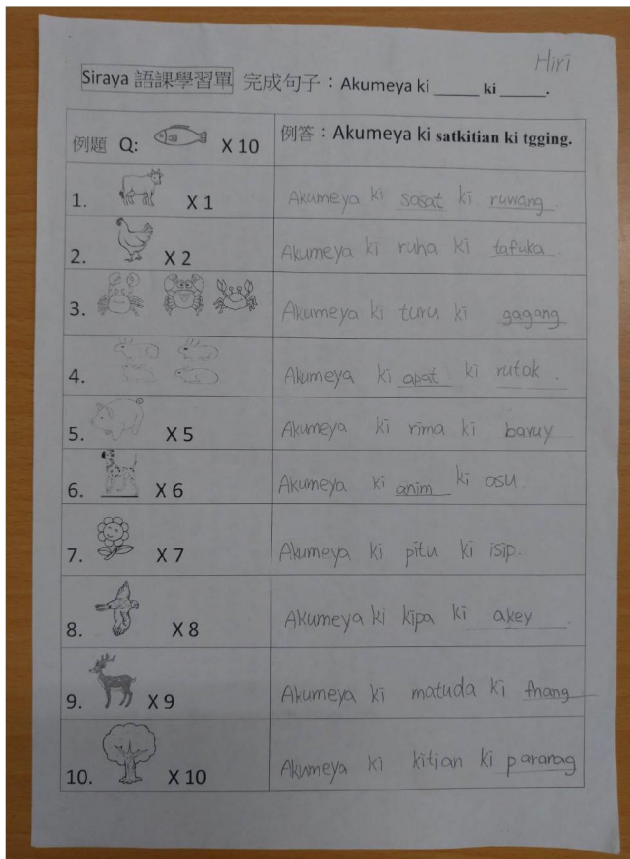 Hiri
Siraya 語課學習單 完成句子：Akumeya ki ______ ki ______.
例題 Q: X 10 例答：Akumeya ki satkitian ki tgging.
1. X 1 Akumeya ki sasat ki ruwang.
2. X 2 Akumeya ki ruha ki tafuka.
3. Akumeya ki turu ki gagang
4. Akumeya ki apat ki rutok.
5. X 5 Akumeya ki rima ki bavuy
6. X 6 Akumeya ki anim ki asu.
7. X 7 Akumeya ki pitu ki isip.
8. X 8 Akumeya ki kipa ki akey.
9. X 9 Akumeya ki matuda ki
10. X 10 Akumeya ki kitian ki paranag